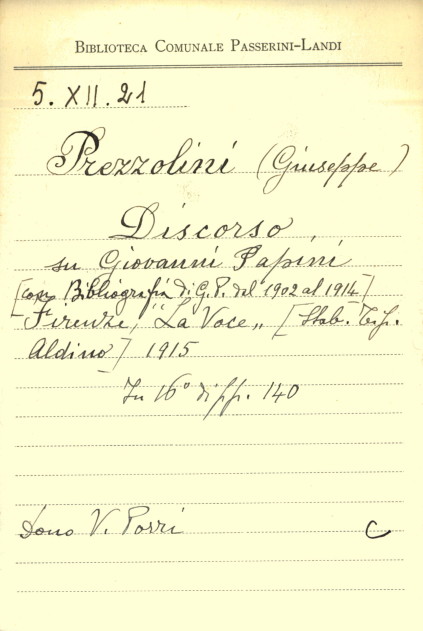 BIBLIOTECA COMUNALE PASSERINI-LANDI
5. XII. 21
Prezzolini (Giuseppe)
Discorso
su Giovanni Papini
[con Bibliografia di G. P. del 1902 al 1914]
Firenze, "La Voce„ [Stab. Tip.
Aldino] 1915
In 16° di pp. 140
Dono V. Porri
C